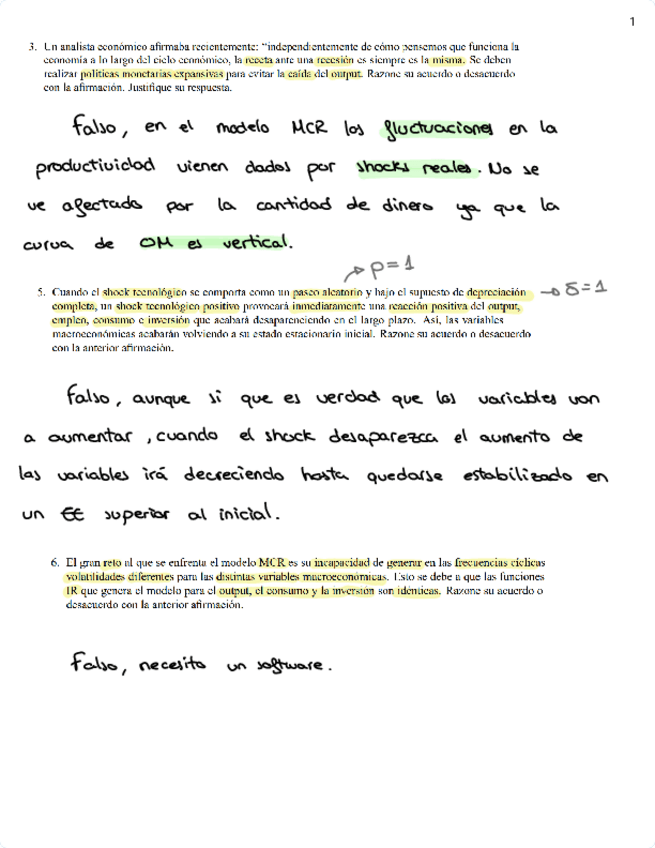 1
3. Un analista económico afirmaba recientemente: "independientemente de cómo pensemos que funciona la
economía a lo largo del ciclo económico, la receta ante una recesión es siempre es la misma. Se deben
realizar políticas monetarias expansivas para evitar la caída del output. Razone su acuerdo o desacuerdo
con la afirmación. Justifique su respuesta.
falso, en el modelo MCR los fluctuaciones en la
productividad vienen dados por shocks reales. No se
ve afectado por la cantidad de dinero ya que la
curva de OM es vertical.
→ ρ=1
5. Cuando el shock tecnológico se comporta como un paseo aleatorio y bajo el supuesto de depreciación → δ=1
completa, un shock tecnológico positivo provocará inmediatamente una reacción positiva del output,
empleo, consumo e inversión que acabará desapareciendo en el largo plazo. Así, las variables
macroeconómicas acabarán volviendo a su estado estacionario inicial. Razone su acuerdo o desacuerdo
con la anterior afirmación.
falso, aunque si que es verdad que las variables van
a aumentar, cuando el shock desaparezca el aumento de
las variables irá decreciendo hasta quedarse estabilizado en
un EE superior al inicial.
6. El gran reto al que se enfrenta el modelo MCR es su incapacidad de generar en las frecuencias cíclicas
volatilidades diferentes para las distintas variables macroeconómicas. Esto se debe a que las funciones
IR que genera el modelo para el output, el consumo y la inversión son idénticas. Razone su acuerdo o
desacuerdo con la anterior afirmación.
falso, necesito un software.